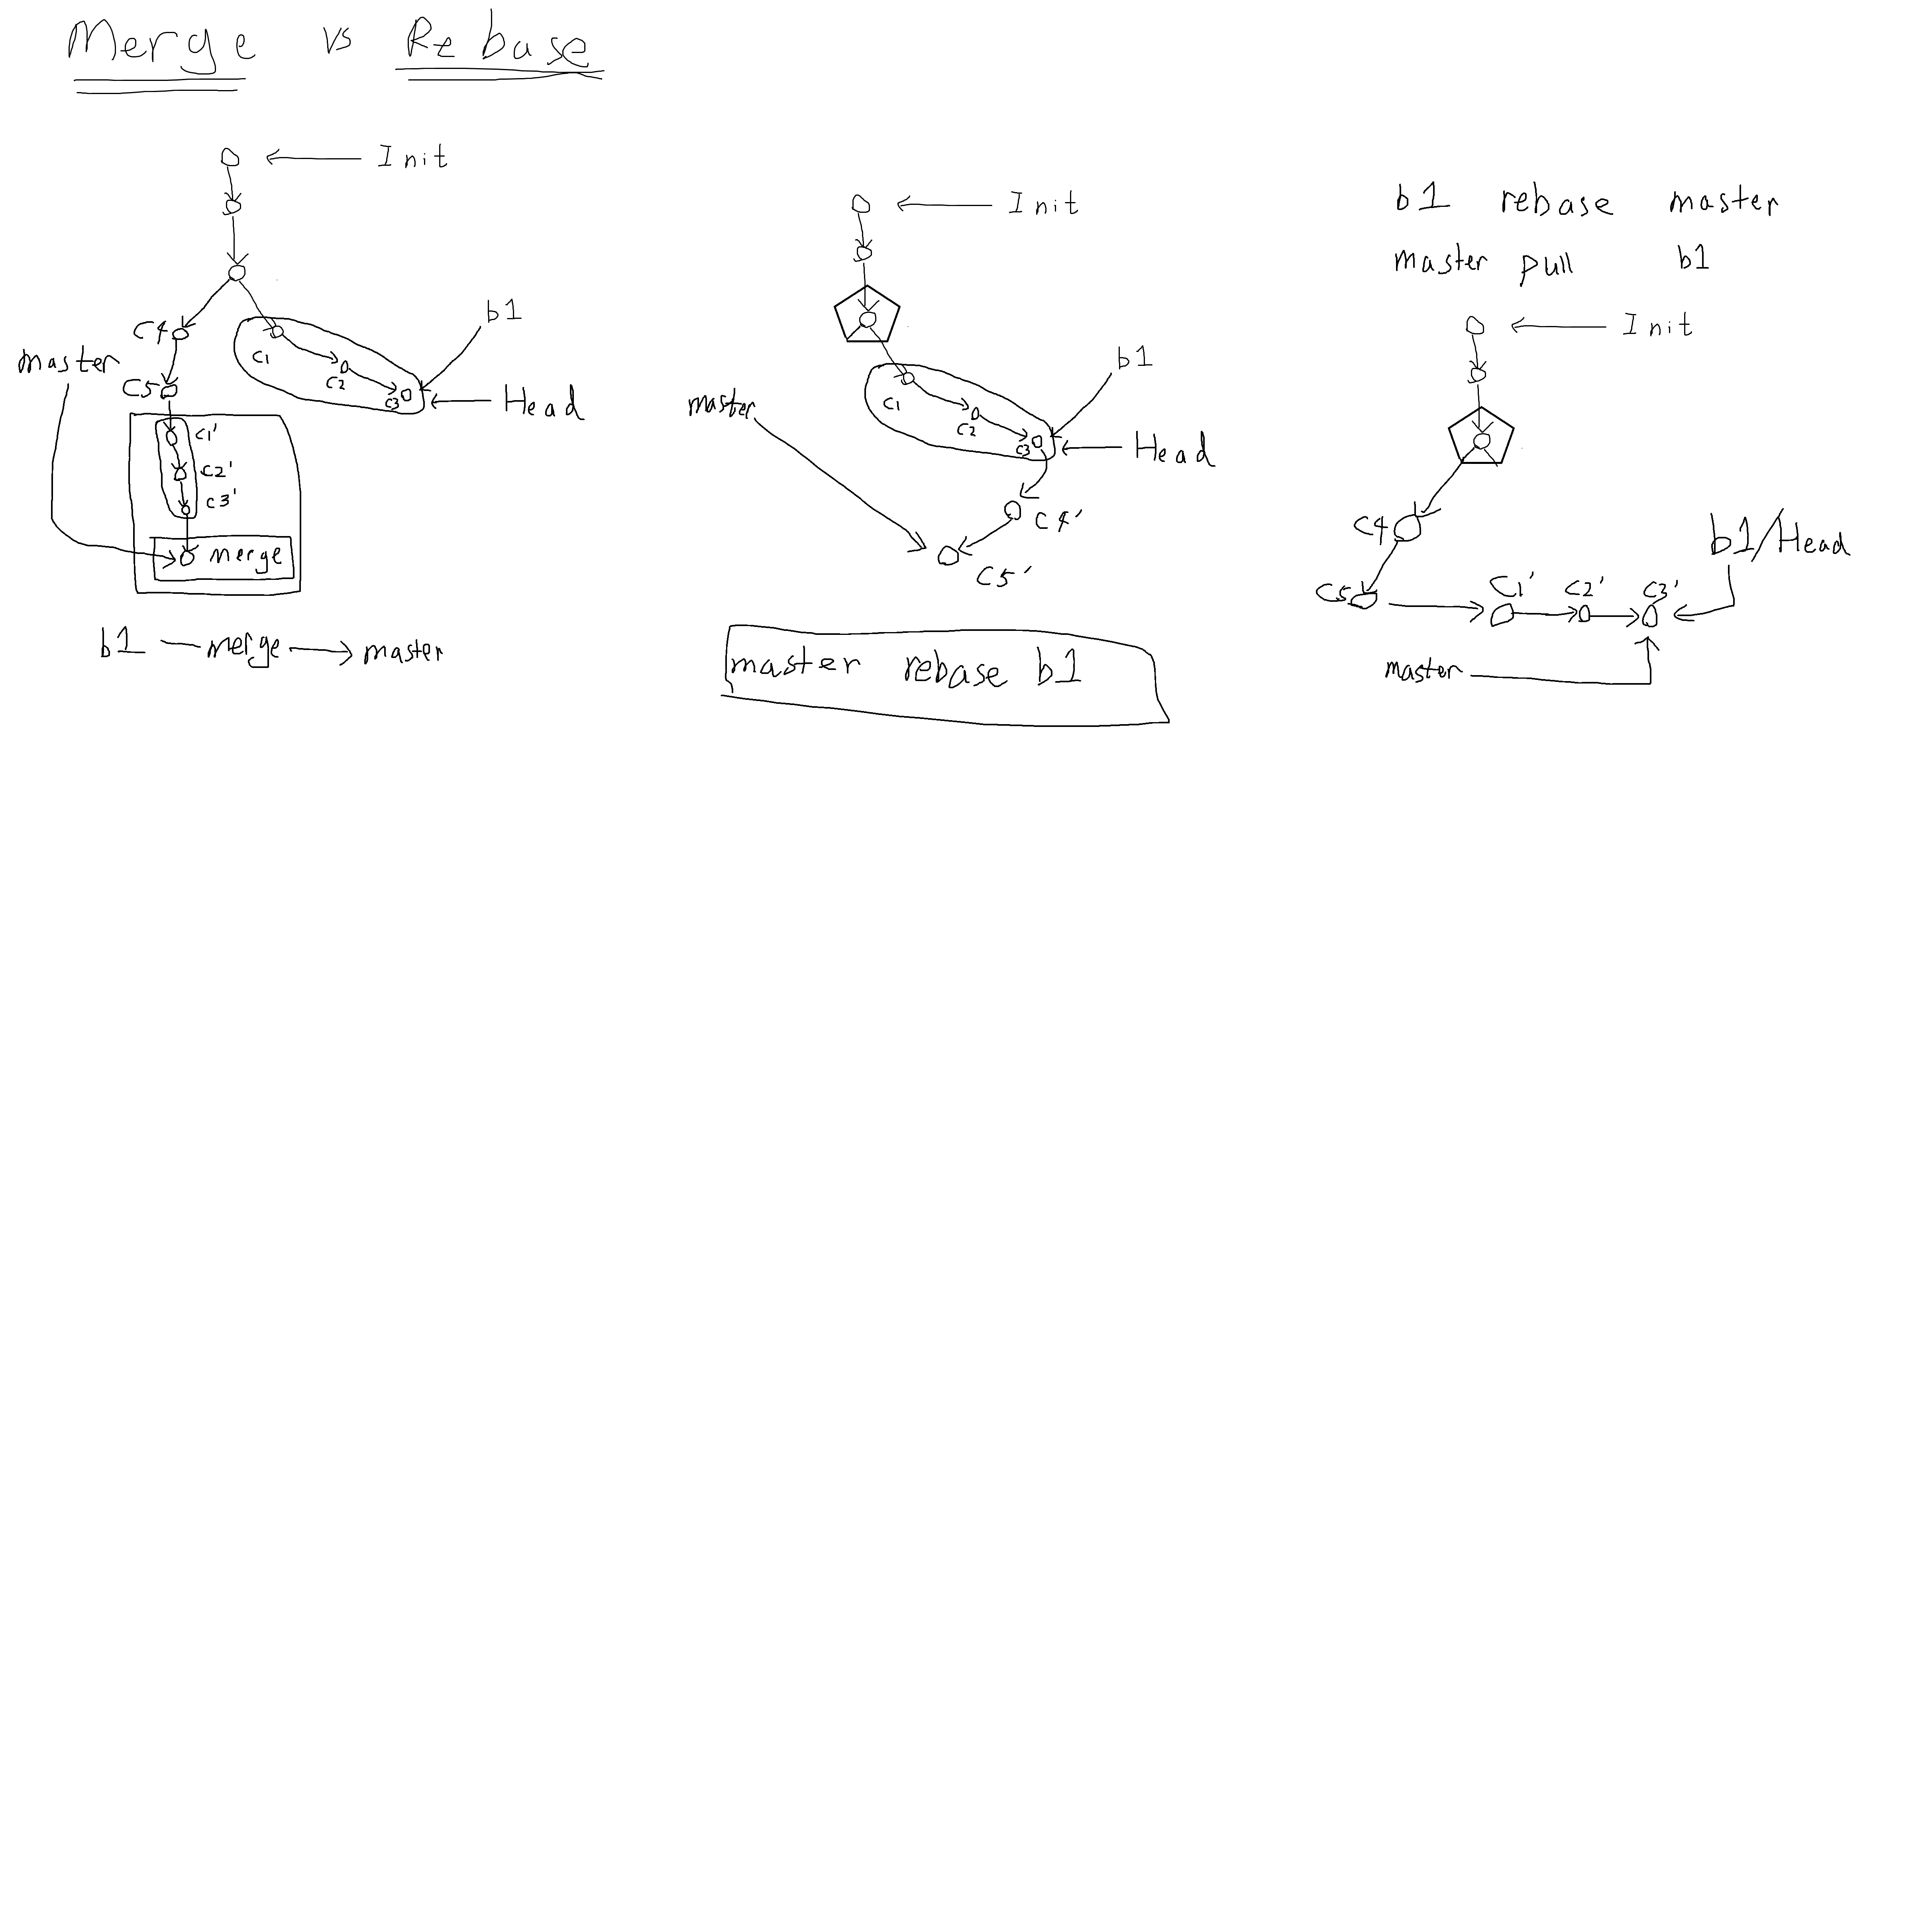 Merge vs Rebase
Init
C4
C1
C2
C3
b1
Head
master
C5
C1'
C2'
C3'
merge
b1 merge master
Init
C1
C2
C3
b1
Head
master
C4'
C5'
master rebase b1
b1 rebase master
master pull b1
Init
C4
C5
C1' C2' C3'
b1/Head
master